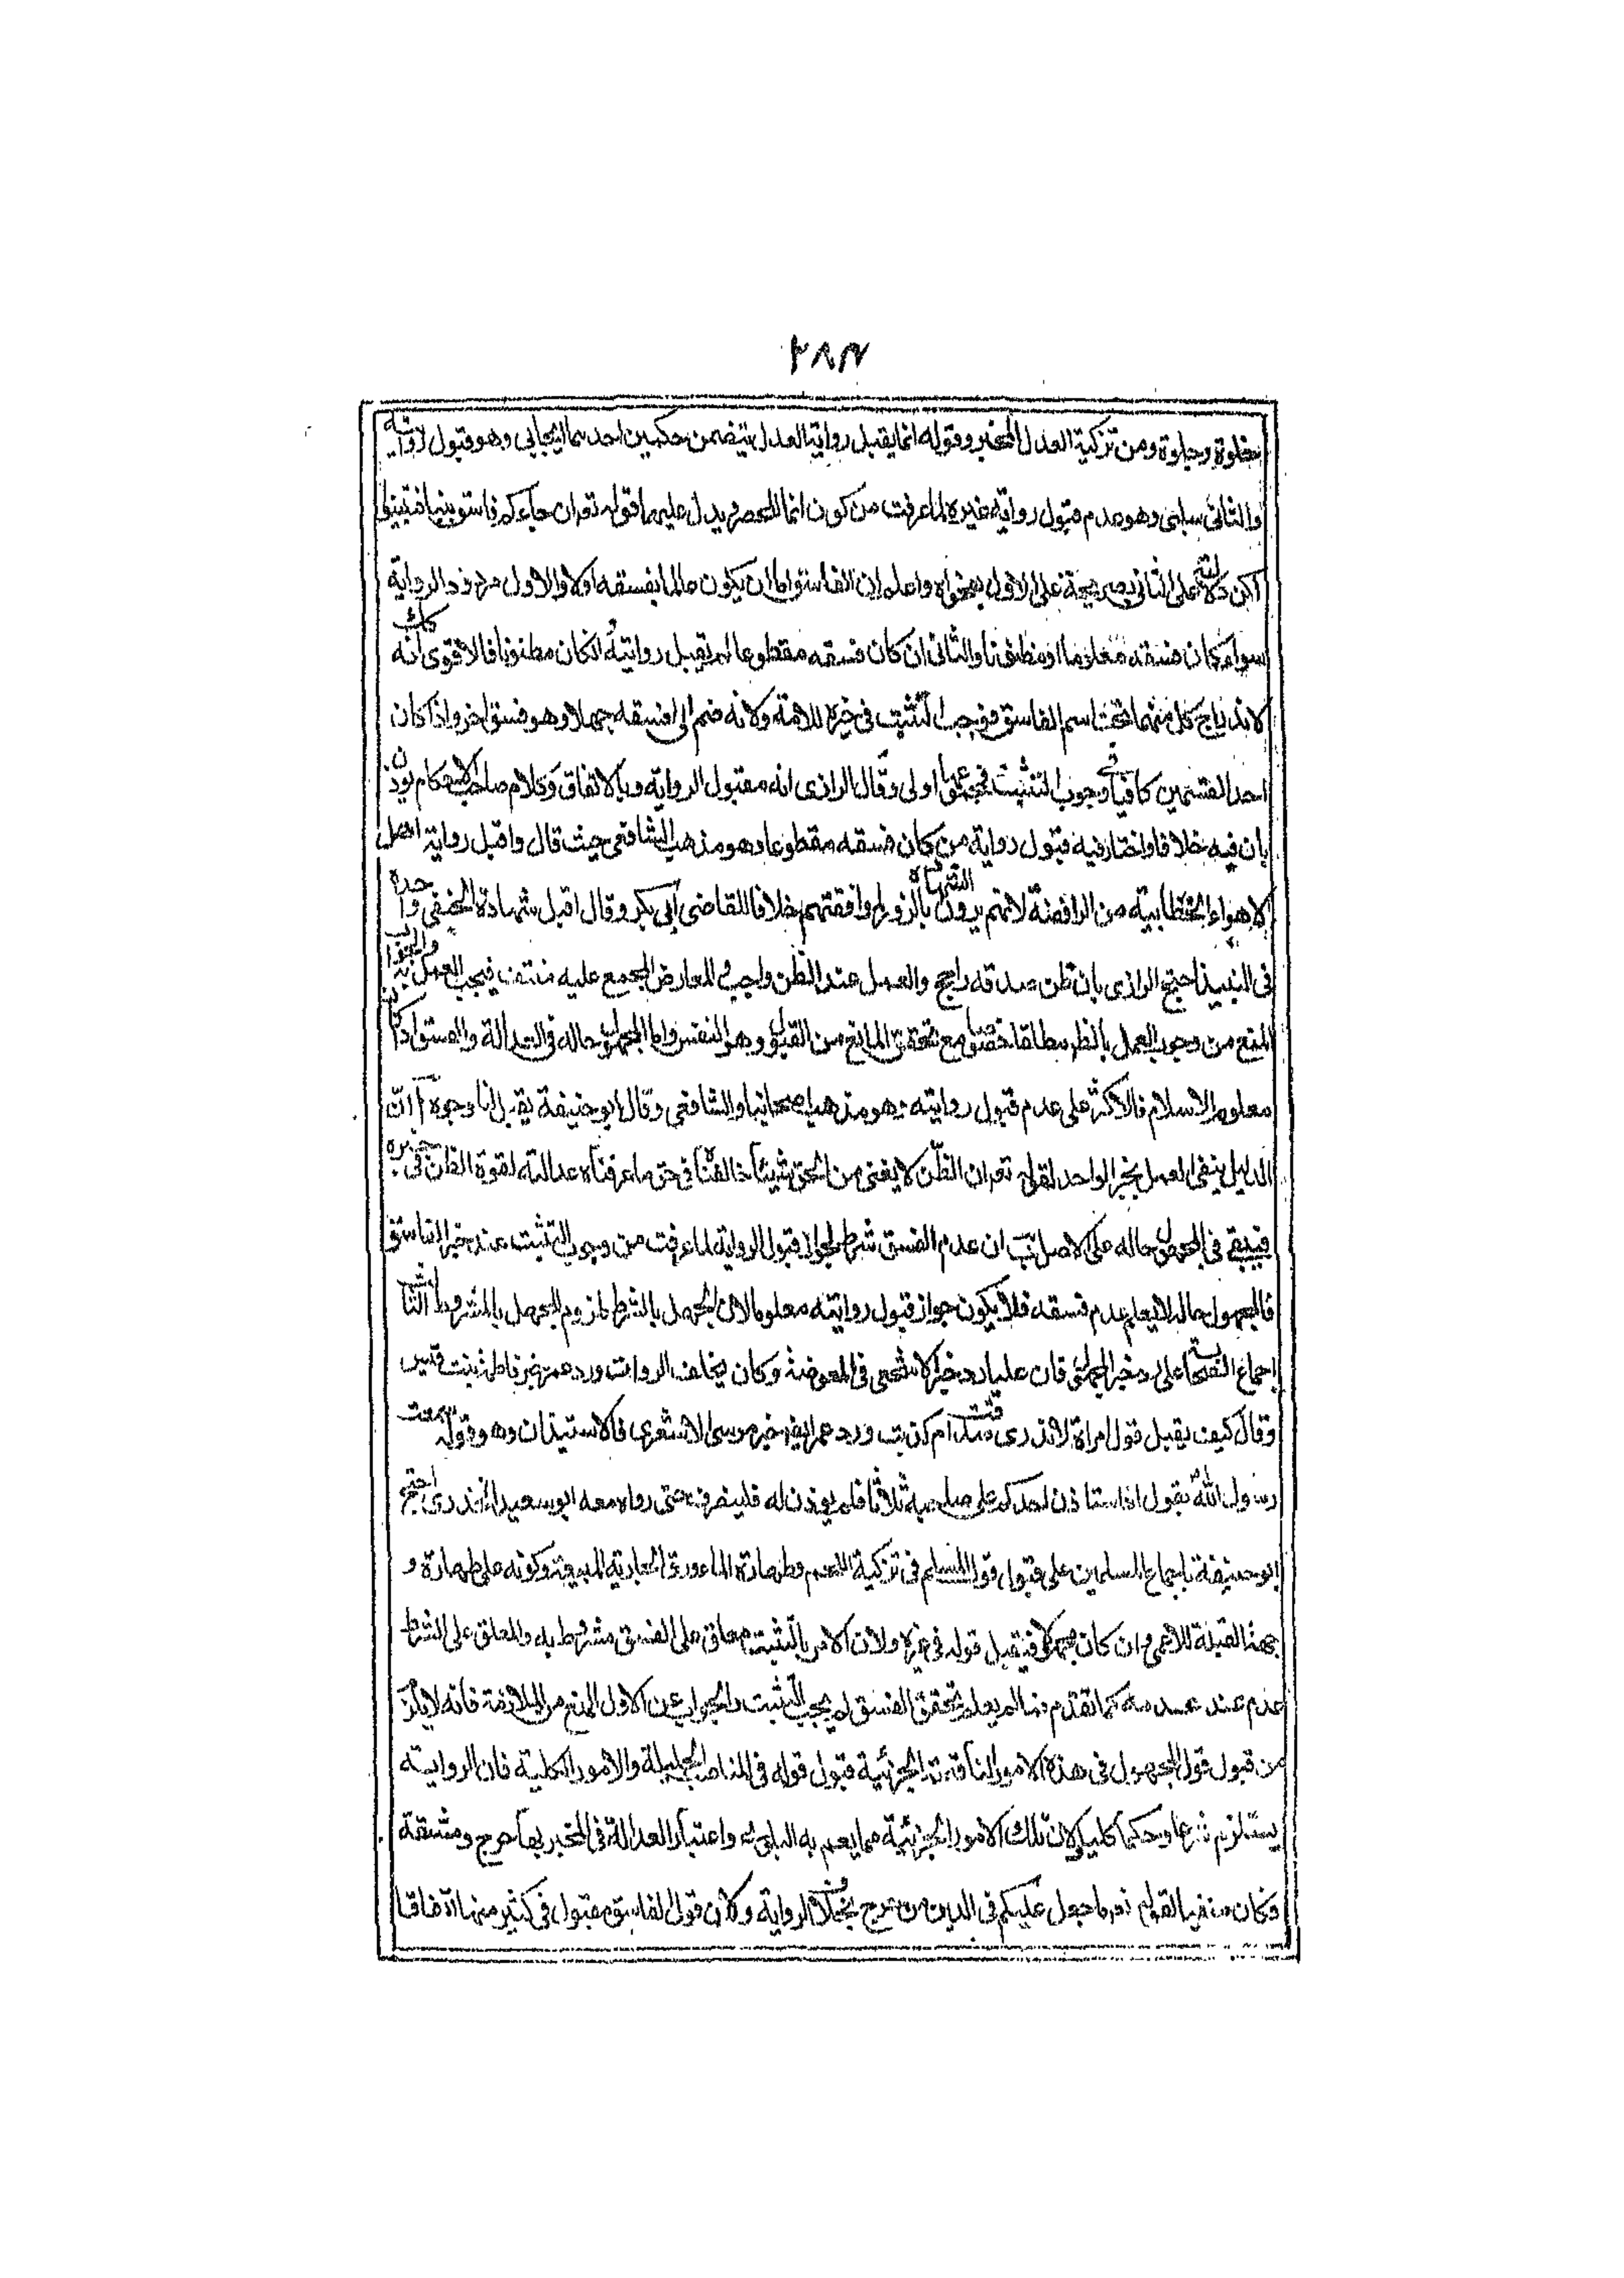 ٢٨٣
بخلوة وجلوة ومن تزكية العدل المخبر وقوله انما يقبل رواية العدل يتضمن حكمين احدهما ايجابى وهو قبول روايته
والثانى سلبى وهو عدم قبول رواية غيره لما عرفت من كون انما للحصر ويدل عليهما قوله تع ان جاءكم فاسق بنبا فتبينوا
لكن دلالته على الثانى بصريحه وعلى الاول بفحواه واعلم ان الفاسق اما ان يكون عالما بفسقه اولا والاول مردود الرواية
سواء كان فسقه معلوما او مظنونا والثانى ان كان فسقه مقطوعا لم يقبل روايته وان كان مظنونا فالاقوى انه كك
لاندراج كل منهما تحت اسم الفاسق فوجب التثبت فى خبره للاية ولانه ضم الى فسقه جهلا وهو فسق اخر واذا كان
احد القسمين كافيا فى وجوب التثبت فمجموعهما اولى وقال الرازى انه مقبول الرواية بالاتفاق وكلام صاحب الاحكام يوذن
بان فيه خلافا واختار فيه قبول رواية من كان فسقه مقطوعا وهو مذهب الشافعى حيث قال واقبل رواية اهل
الاهواء الا الخطابية من الرافضة لانهم يرون الشهادة بالزور لموافقتهم خلافا للقاضى ابى بكر وقال اقبل شهادة الحنفى واحده
فى النبيذ احتج الرازى بان ظن صدقه راجح والعمل عند الظن واجب والمعارض المجمع عليه منتف فيجب العمل به والجواب
المنع من وجوب العمل بالظن مطلقا خصوصا مع تحقق المانع من القبول وهو الفسق واما المجهول حاله فى العدالة والفسق اذا كان
معلوم الاسلام فالاكثر على عدم قبول روايته وهو مذهب اصحابنا والشافعى وقال ابو حنيفة يقبل لنا وجوه آ ان
الدليل ينفى العمل بخبر الواحد لقوله تع ان الظن لا يغنى من الحق شيئا خالفناه فى حق ما عرفنا عدالته لقوة الظن فى خبره
فيبقى فى المجهول حاله على الاصل ب ان عدم الفسق شرط لجواز قبول الرواية لما عرفت من وجوب التثبت عند خبر الفاسق
فالمجهول حاله لا يعلم عدم فسقه فلا يكون جواز قبول روايته معلوما لان الجهل بالشرط ملزوم للجهل بالمشروط الثالث
اجماع الصحابة على رد خبر المجهول فان عليا رد خبر الاشجعى فى المفوضة وكان يحلف الرواة ورد عمر خبر فاطمة بنت قيس
وقال كيف يقبل قول امراة لا ندرى صدقت ام كذبت ورد عمر ايضا خبر موسى الاشعرى فى الاستيذان وهو قوله سمعت
رسول الله يقول اذا استاذن احدكم على صاحبه ثلاثا فلم يوذن له فلينصرف حتى رواه معه ابو سعيد الخدرى احتج
ابو حنيفة باجماع المسلمين على قبول قول المسلم فى تزكية اللحم وطهارة الماء ورق الجارية المبيعة وكونه على طهارة و
جهة القبلة للاعمى وان كان مجهولا فيقبل قوله فى خبره ولان الامر بالتثبت معلق على الفسق مشروط به والمعلق على الشرط
عدم عند عدمه كما تقدم فما لم يعلم تحقق الفسق لم يجب التثبت والجواب عن الاول المنع من الملازمة فانه لا يلزم
من قبول قول المجهول فى هذه الامور الناقصة الجزئية قبول قوله فى المناصب الجليلة والامور الكلية فان الرواية
يستلزم شرعا وحكما كليا ولان تلك الامور الجزئية مما يعم به البلوى واعتبار العدالة فى المخبر بها حرج ومشقة
فكان منفيا لقوله تع وما جعل عليكم فى الدين من حرج بخلاف الرواية ولان قول الفاسق مقبول فى كثير منها اتفاقا